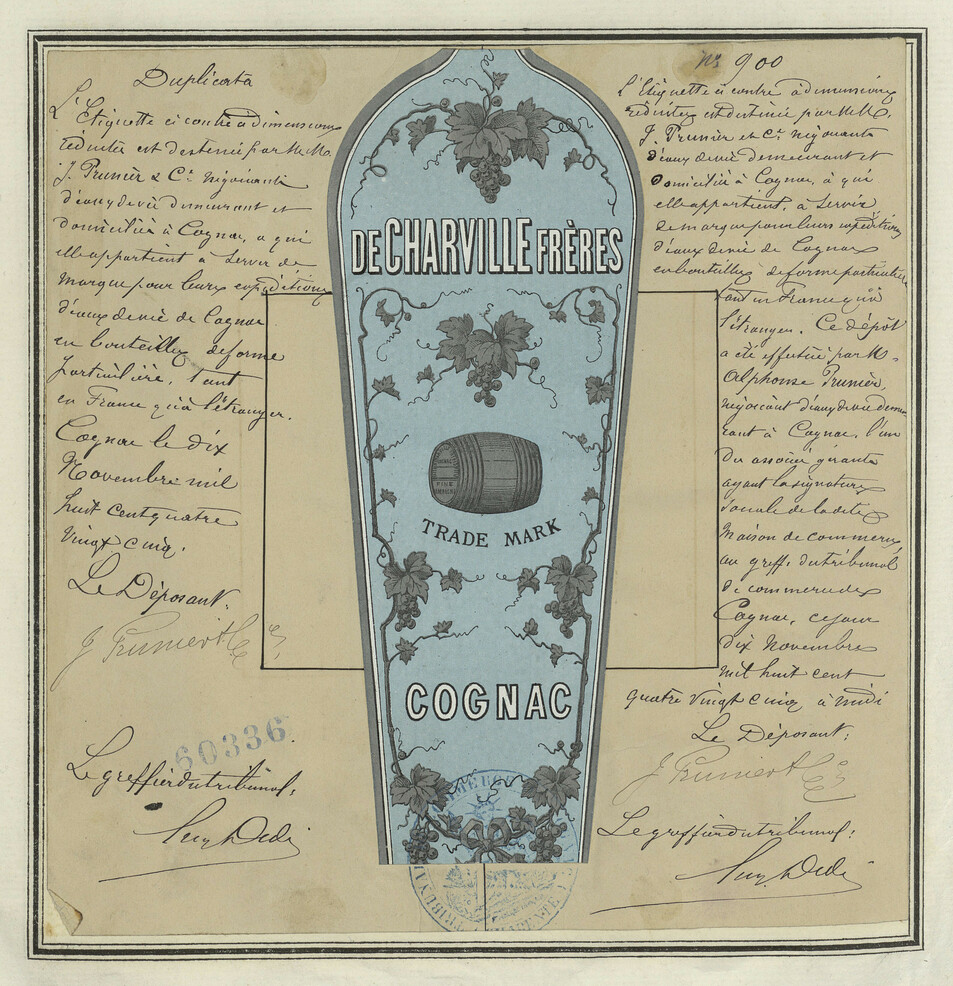 Duplicata
L'Etiquette ci contre à dimensions
réduites est destinée par MM.
J. Prunier & Cie négociants
d'eaux de vie demeurant et
domiciliés à Cognac, a qui
elle appartient à servir de
marque pour leurs expéditions
d'eaux de vie de Cognac
en bouteilles de forme
particulière, tant
en France qu'à l'étranger.
Cognac le dix
Novembre mil
huit cent quatre
vingt cinq.
Le Déposant:
J Prunier & Cie
60336.
Le greffier du tribunal:
DE CHARVILLE FRÈRES
COGNAC
FINE
TRADE MARK
COGNAC
COMMERCE
No 900
l'Etiquette ci contre à dimensions
réduites est destinée par MM.
J. Prunier et Cie négociants
d'eaux de vie demeurant et
domiciliés à Cognac, à qui
elle appartient, à servir
de marque pour leurs expéditions
d'eaux de vie de Cognac
en bouteilles de forme particulière
tant en France qu'à
l'étranger. Ce dépôt
a été effectué par M.
Alphonse Prunier,
négociant d'eaux de vie demeu
rant à Cognac, l'un
des associés gérants
ayant la signature
sociale de la dite
Maison de commerce
au greffe du tribunal
de commerce de
Cognac, ce jour
dix Novembre
mil huit cent
quatre vingt cinq à midi
Le Déposant:
J Prunier & Cie
Le greffier du tribunal: